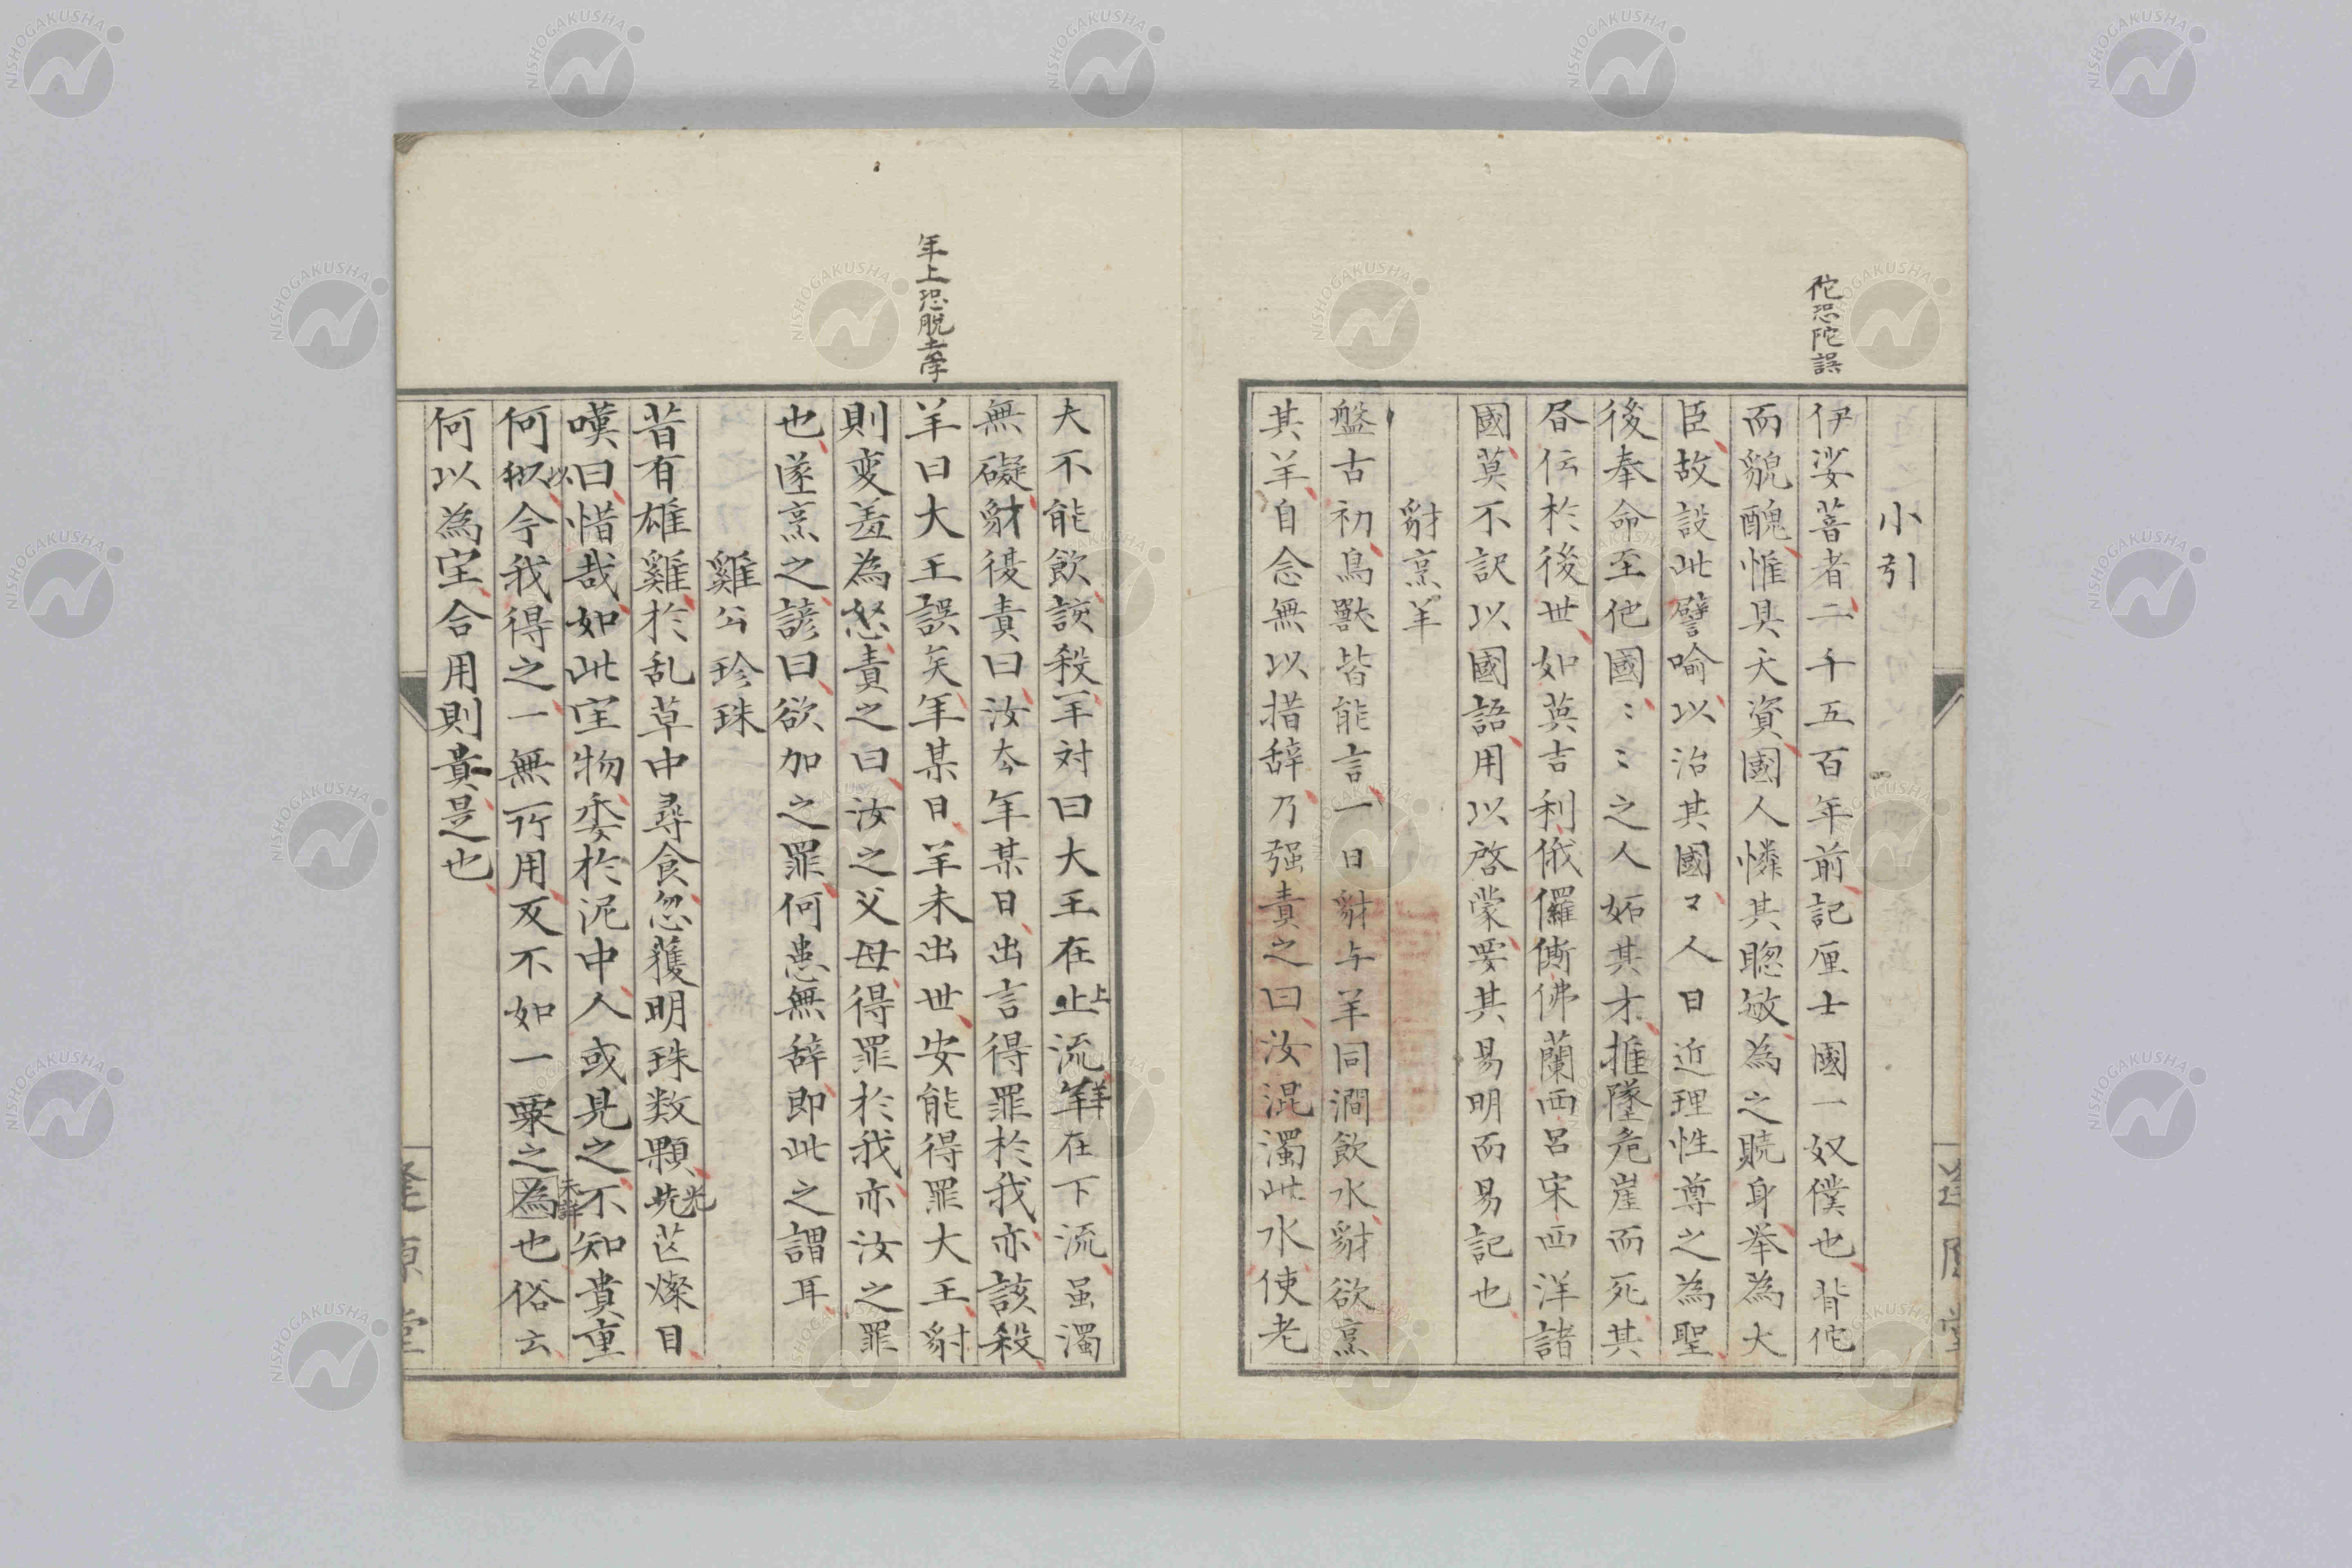 佗恐陀誤
小引
伊娑菩者二千五百年前記厘士國一奴僕也背佗
而貌醜惟具天資國人憐其聡敏為之贖身举為大
臣故設此譬喻以治其國々人日近理性尊之為聖
後奉命至他國〻〻之人妬其才推墜危崖而死其
昼伝於後世如英吉利俄儸㒋佛蘭西呂宋西洋諸
國莫不訳以國語用以啓蒙要其易明而易記也
豺烹羊
盤古初鳥獸皆能言一日豺与羊同澗飲水豺欲烹
其羊自念無以措辞乃强責之曰汝混濁此水使老
夫不能飲該殺羊対曰大王在上流羊在下流虽濁
無礙豺復責曰汝厺年某日出言得罪於我亦該殺
年上恐脱去字
羊曰大王誤矣年某日羊未出世安能得罪大王豺
則変羞為怒責之曰汝之父母得罪於我亦汝之罪
也遂烹之諺曰欲加之罪何患無辞即此之謂耳
雞公珍珠
昔有雄雞於乱草中尋食忽獲明珠数顆光芒燦目
嘆曰惜哉如此宝物委於泥中人或見之不知貴重
何以今我得之一無所用反不如一粟之為也俗云
未詳
何以為宝合用則貴是也
逢原堂
NISHOGAKUSHA